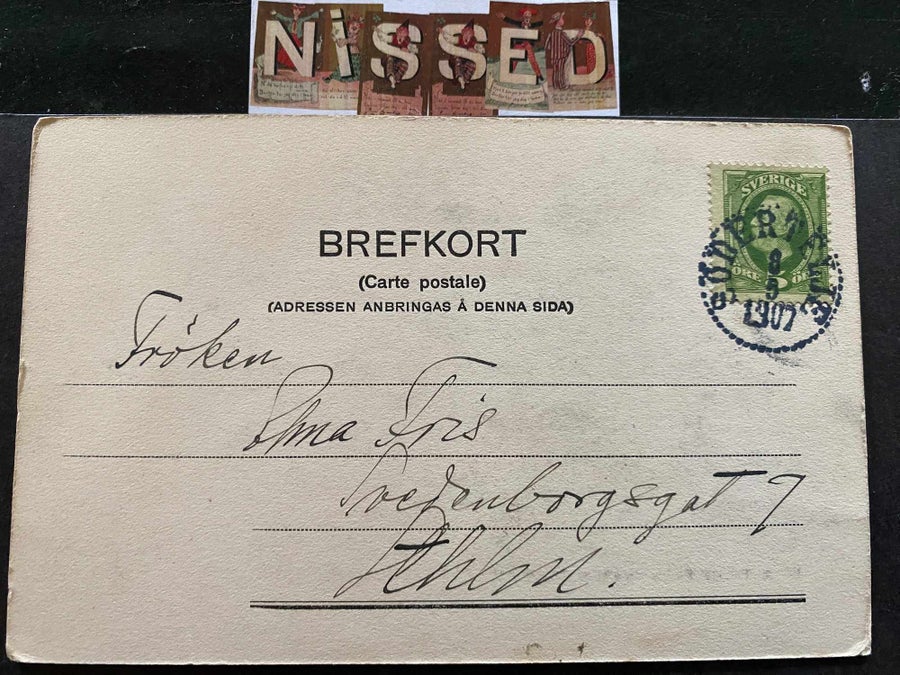 NISSED
BREFKORT
(Carte postale)
(ADRESSEN ANBRINGAS Å DENNA SIDA)
SVERIGE
SÖDERTELJE
8
5
1907
Fröken
Elma Fris
Svedenborgsgat 7
Sthlm.